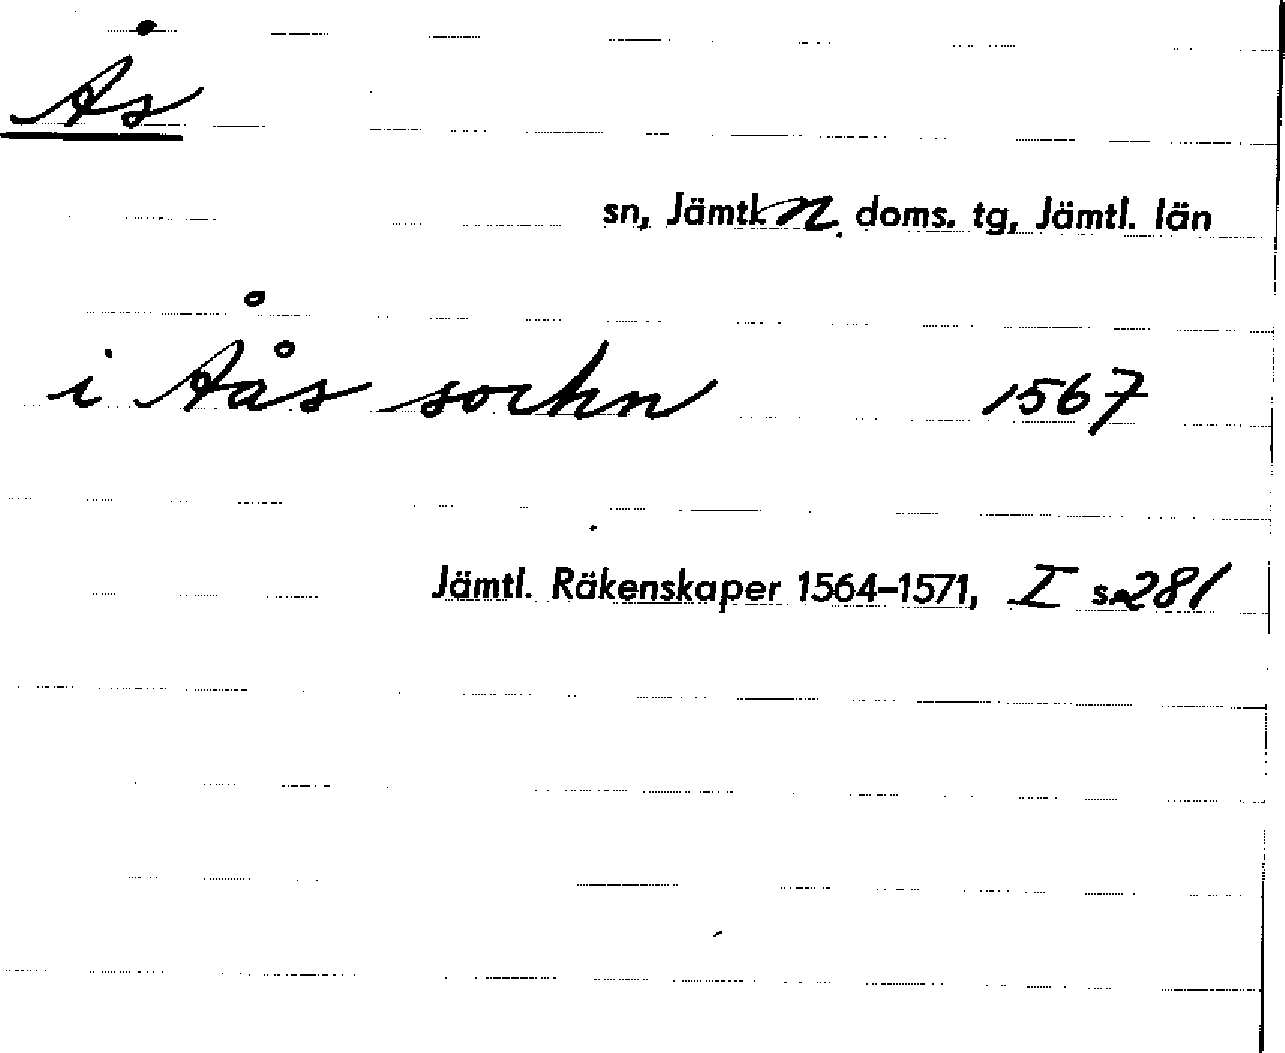 Ås
sn, Jämtl. n. doms. tg, Jämtl. län
i Åås sockn 1567
Jämtl. Räkenskaper 1564–1571, I s. 281